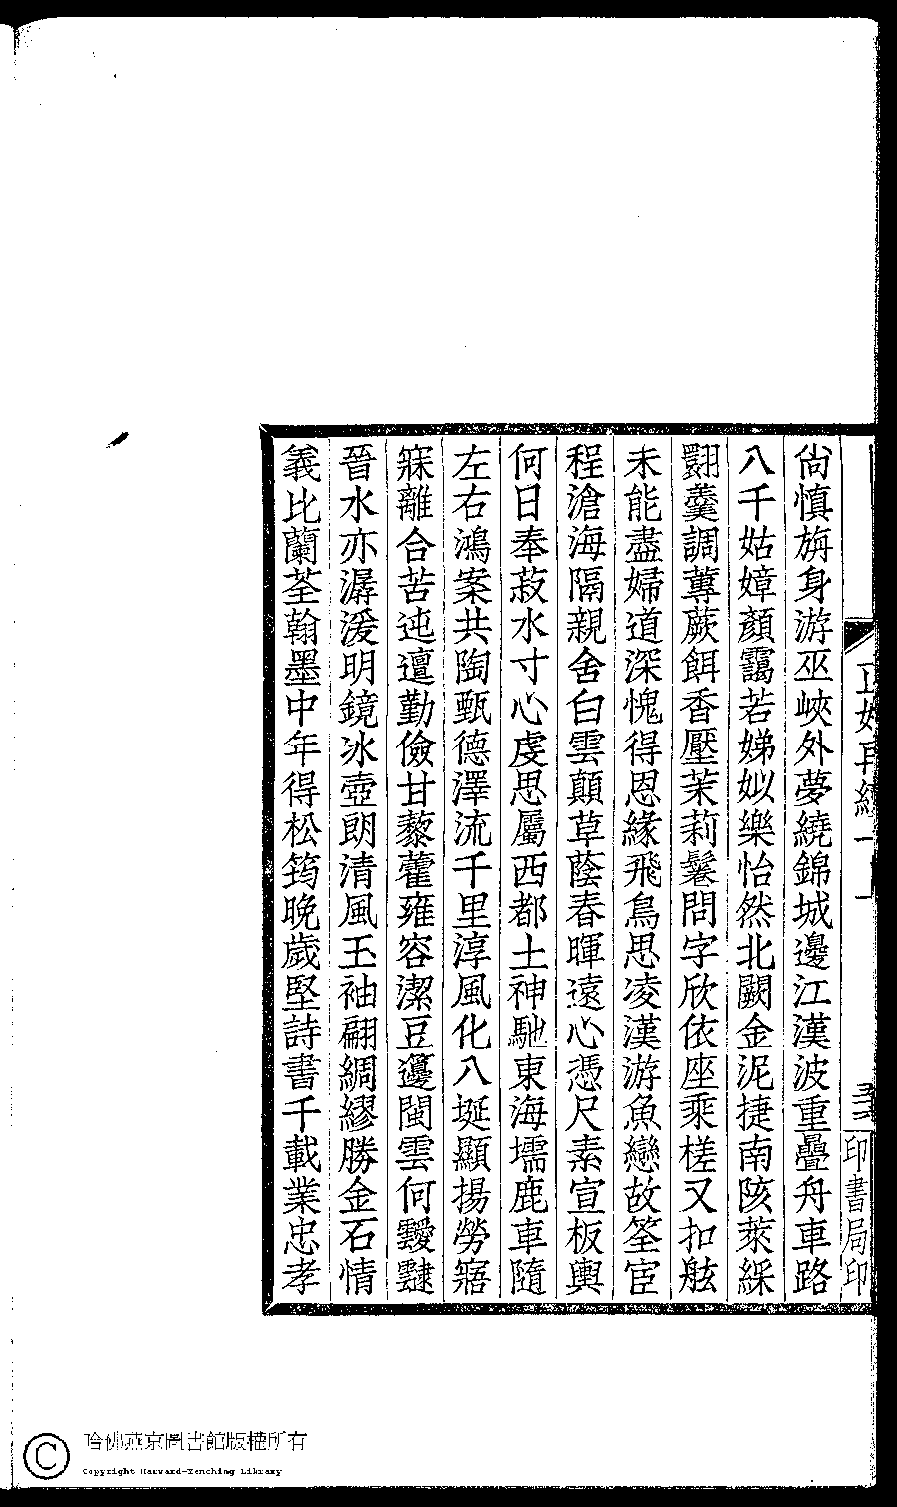 尙慎旃身游巫峽外夢繞錦城邊江漢波重疊舟車路
八千姑嫜顏靄若娣姒樂怡然北闕金泥捷南陔萊綵
翾羹調蓴蕨餌香壓茉莉鬈問字欣依座乘槎又扣舷
未能盡婦道深愧得恩緣飛鳥思凌漢游魚戀故筌宦
程滄海隔親舍白雲顛草蔭春暉遠心憑尺素宣板輿
何日奉菽水寸心虔思屬西都士神馳東海壖鹿車隨
左右鴻案共陶甄德澤流千里淳風化八埏顯揚勞寤
寐離合苦迍邅勤儉甘藜藿雍容潔豆籩閩雲何靉靆
晉水亦潺湲明鏡冰壺朗清風玉袖翩綢繆勝金石情
義比蘭荃翰墨中年得松筠晚歲堅詩書千載業忠孝
正始再續一
印書局印
哈佛燕京圖書館版權所有
Copyright Harvard-Yenching Library